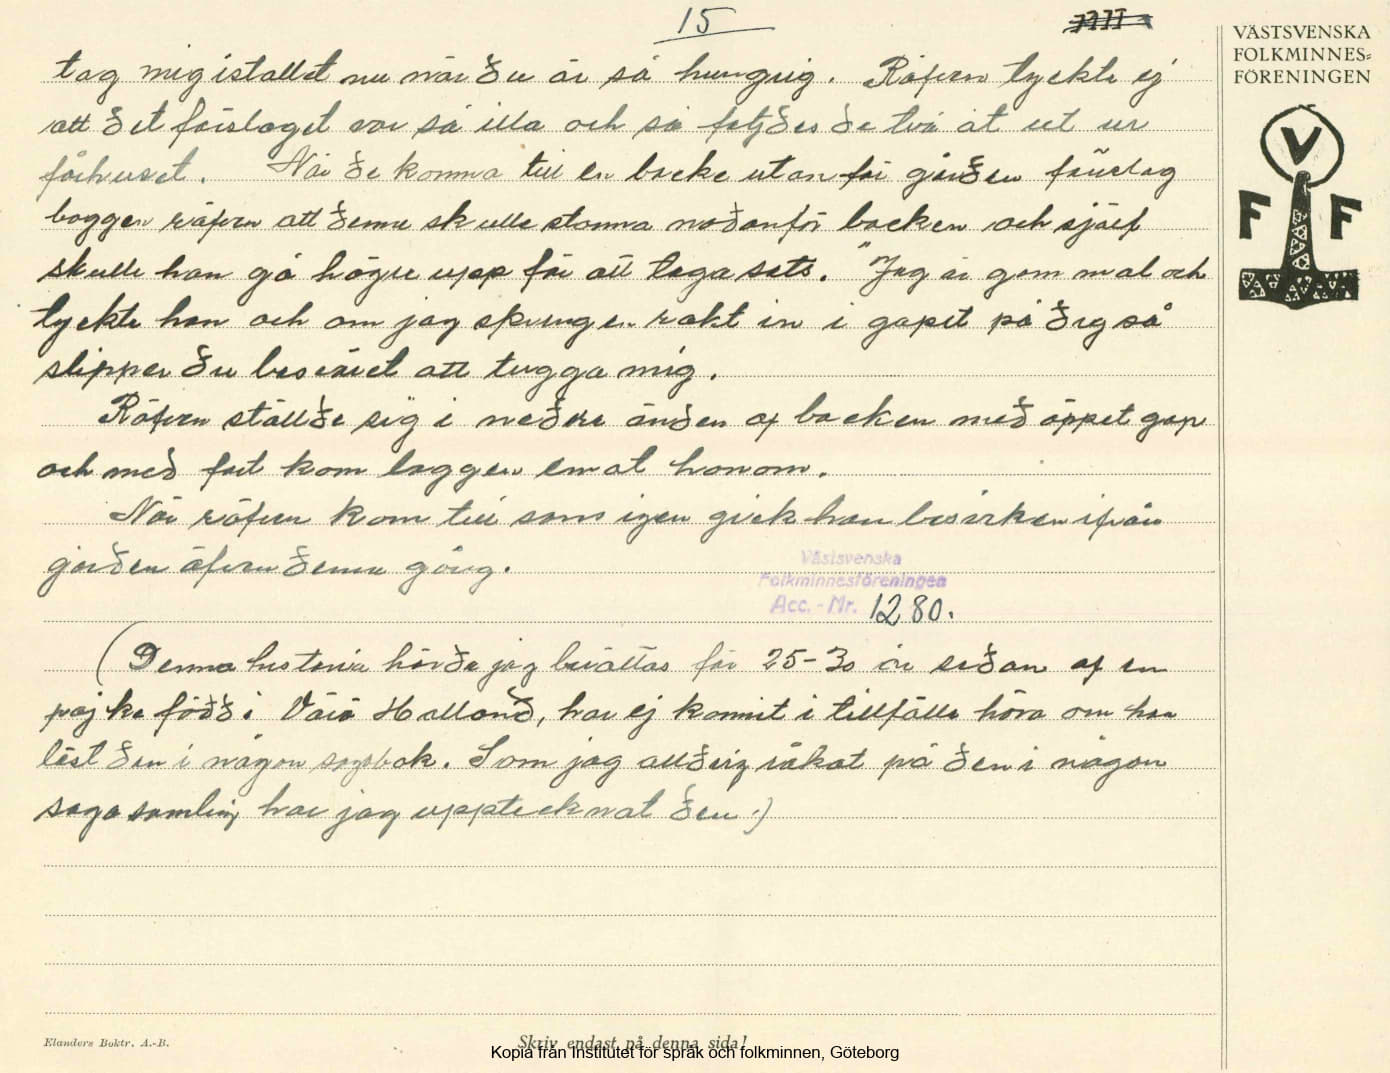 15
VÄSTSVENSKA
FOLKMINNES-
FÖRENINGEN
V
F F
tag mig istallet nu när du är så hungrig. Räfven tyckte ej
att det förslaget var så illa och så följdes de två åt ut ur
fårhuset. När de komma till en backe utanför gården föreslog
baggen räfven att denne skulle stanna nedanför backen och själf
skulle han gå högre upp för att taga sats. "Jag är gammal och
tyckte han och om jag springer rakt in i gapet på dig så
slipper du besväret att tugga mig.
Räfven ställde sig i nedre änden af backen med öppet gap
och med fart kom baggen emot honom.
När räfven kom till sans igen gick han besviken ifrån
gården äfven denna gång.
Västsvenska
Folkminnesföreningen
Acc. - Nr. 1280.
(Denna historia hörde jag berättas för 25-30 år sedan af en
pojke född i Värö Halland, har ej kommit i tillfälle höra om han
läst den i någon sagobok. Som jag alldrig råkat på den i någon
saga samling har jag upptecknat den.)
Elanders Boktr. A.-B.
Skriv endast på denna sida!
Kopia från Institutet för språk och folkminnen, Göteborg